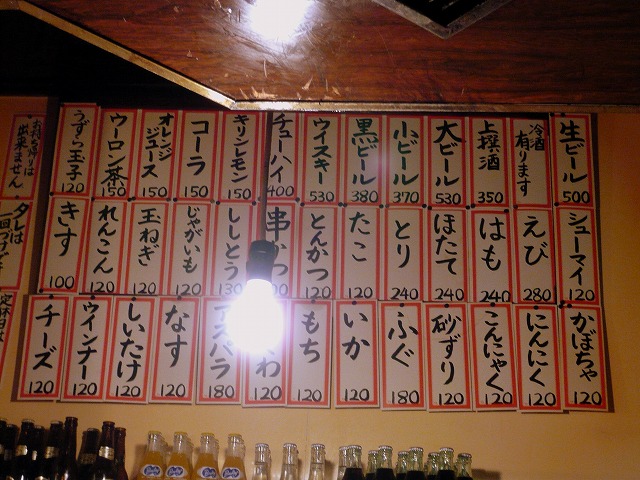 生ビール 500
冷酒有ります
上撰酒 350
大ビール 530
小ビール 370
黒ビール 380
ウイスキー 530
チューハイ 400
キリンレモン 150
コーラ 150
オレンジジュース 150
ウーロン茶 150
うずら玉子 120
シューマイ 120
えび 280
はも 240
ほたて 240
とり 240
たこ 120
とんかつ 120
串かつ
ししとう
じゃがいも 120
玉ねぎ 120
れんこん 120
きす 100
かぼちゃ 120
にんにく 120
こんにゃく 120
砂ずり 120
ふぐ 180
いか 120
もち 120
わ 120
アスパラ 180
なす 120
しいたけ 120
ウインナー 120
チーズ 120
お持ち帰りは
出来ません
タレは
一回づけで